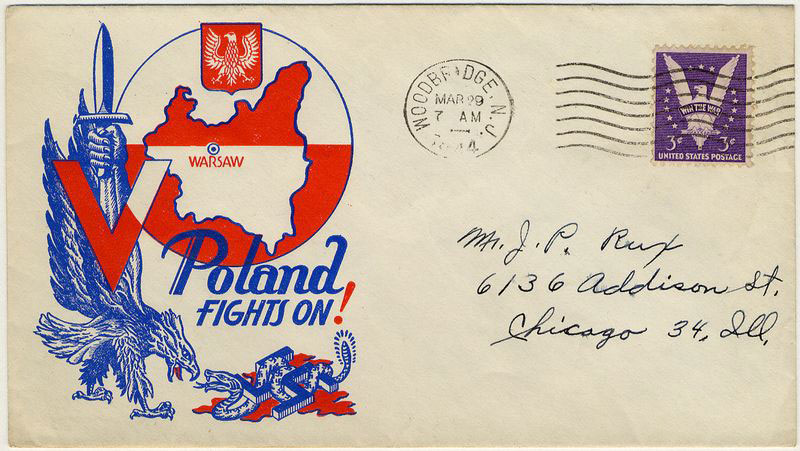 WARSAW
V
Poland
FIGHTS ON!
WOODBRIDGE, N.J.
MAR 29
7 AM
1944
WIN THE WAR
3¢ 3¢
UNITED STATES POSTAGE
Mr. J. P. Rux
6136 Addison St.
Chicago 34, Ill.